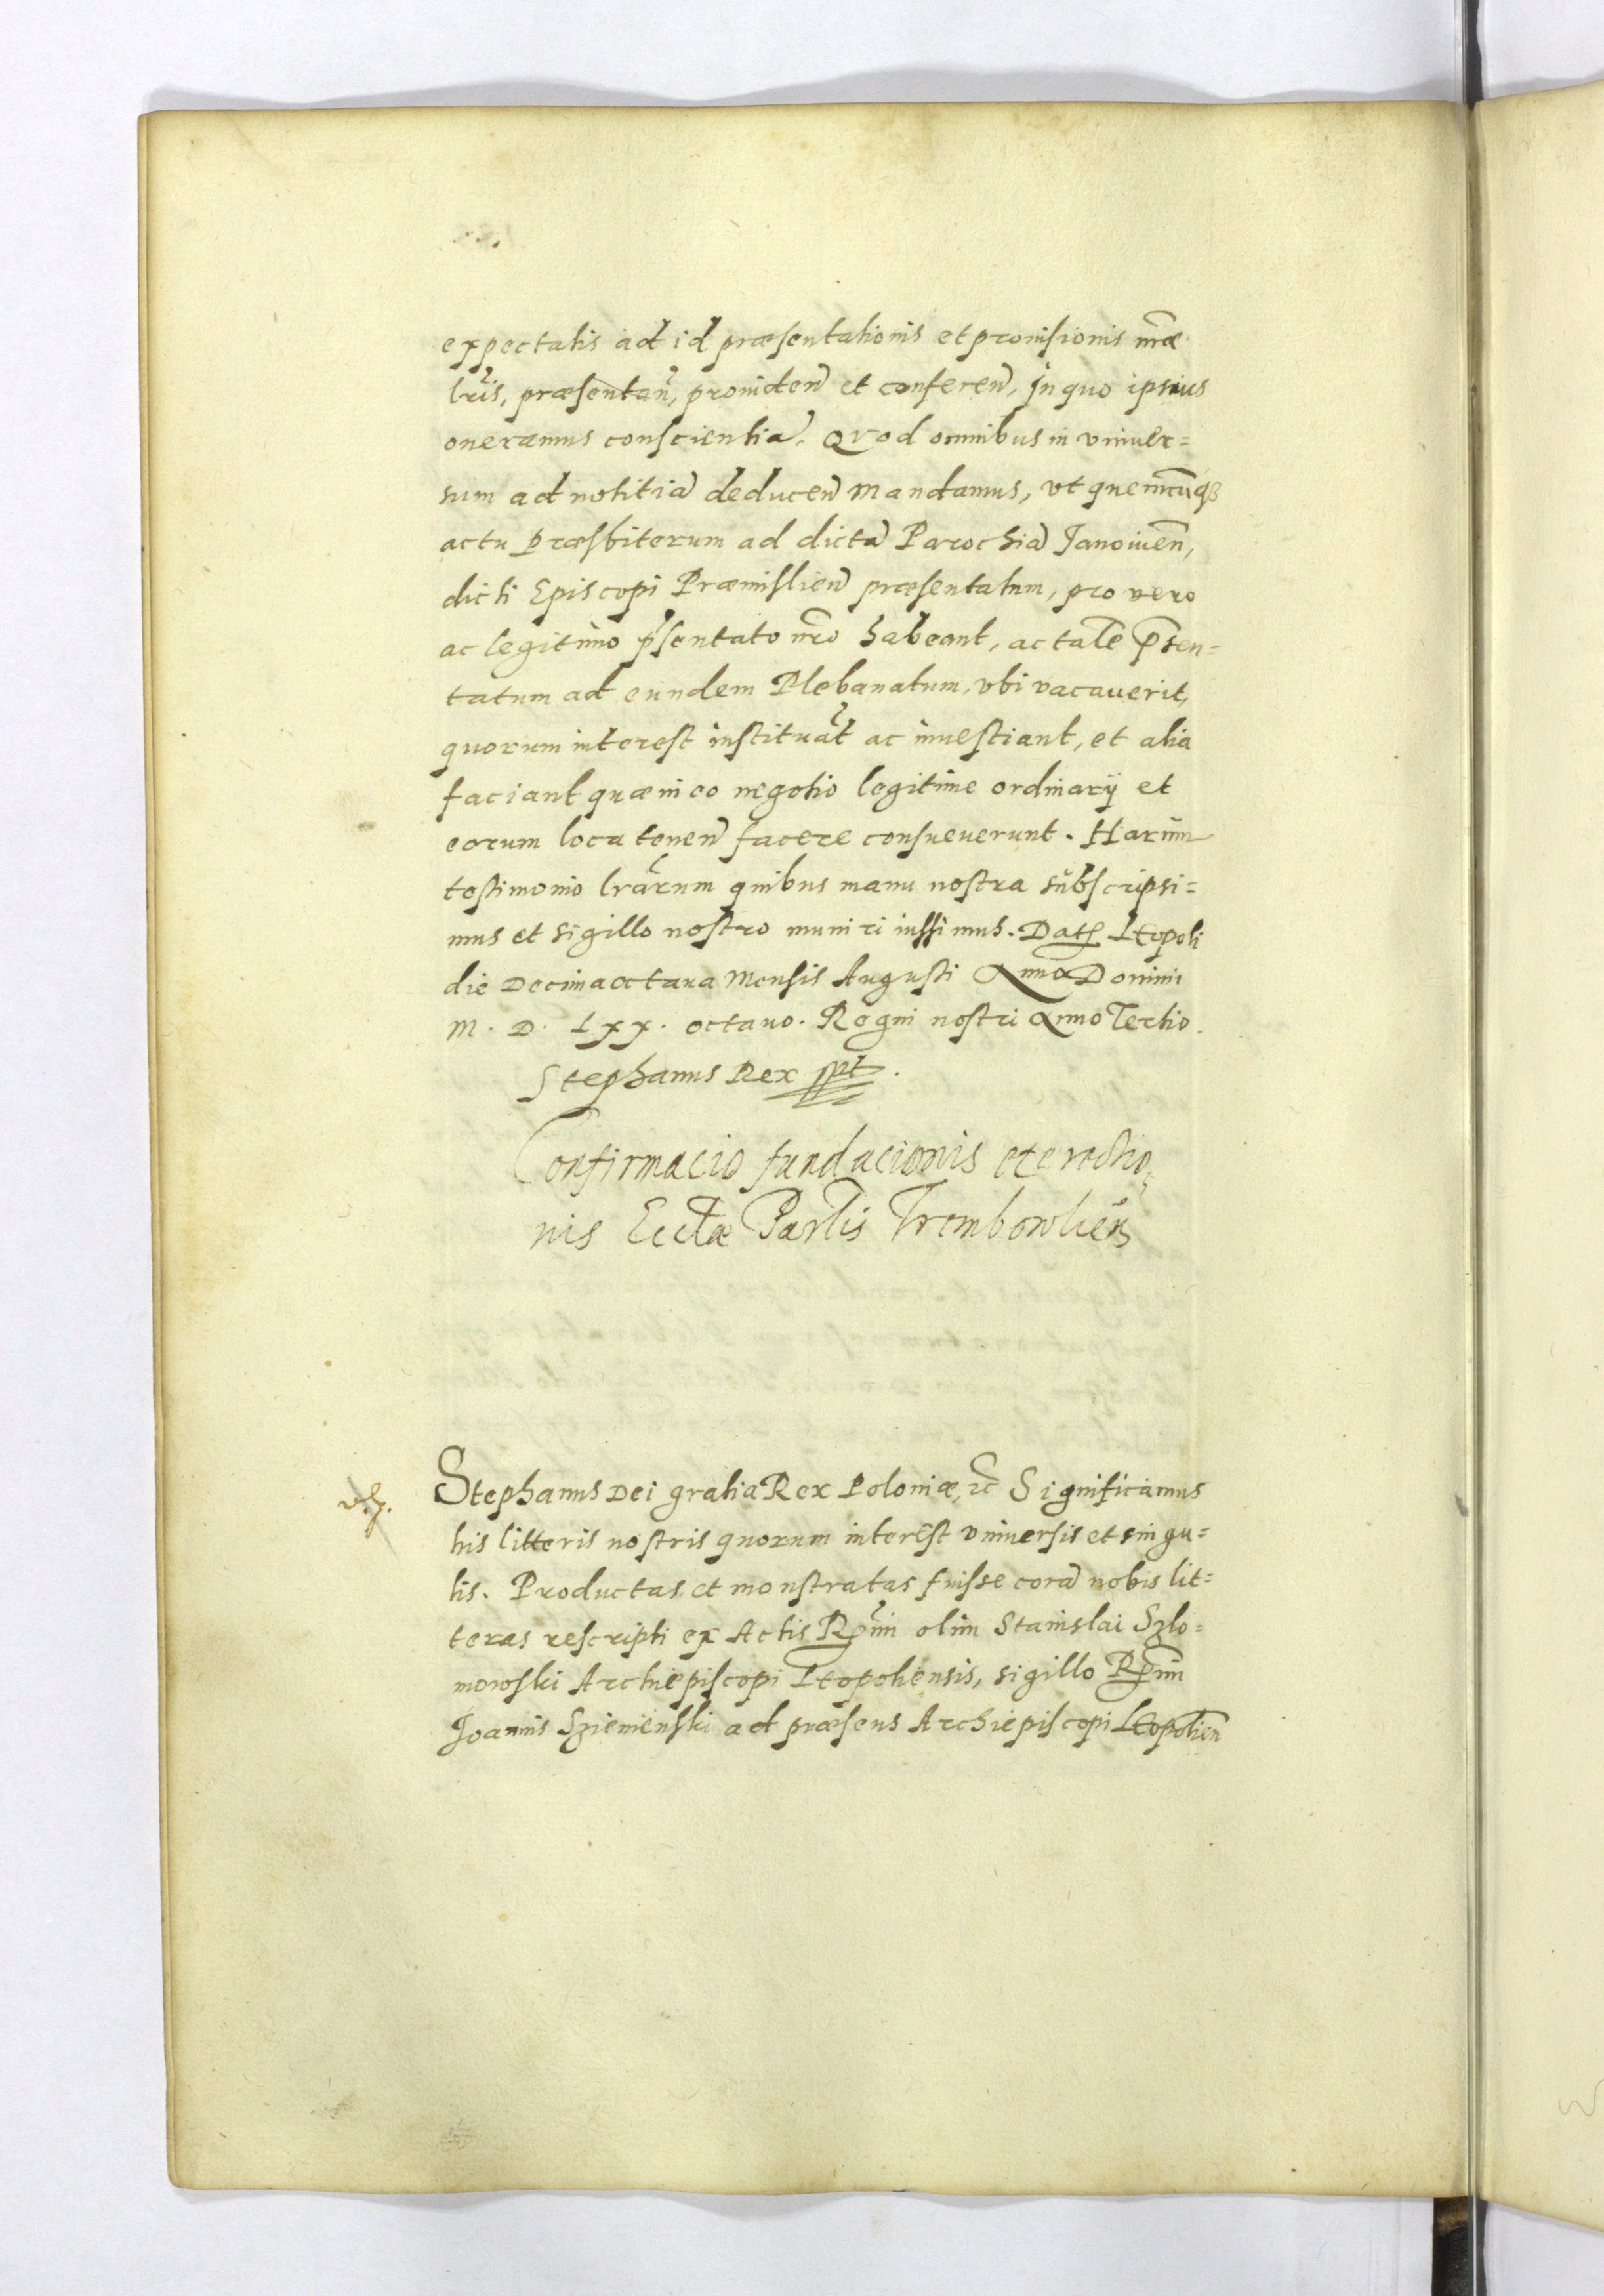 expectatis ad id præsentationis et prouisionis nr̃æ
lr̃is, præsentan̄, prouiden̄ et conferen̄, in quo ipsius
oneramus conscientiā. Quod omnibus in vniuer=
sum ad notitiā deducen̄ mandamus, vt quemcūq3
actu præsbiterum ad dictā Parochiā Janouien̄,
dicti Episcopi Præmislien̄ præsentatum, pro vero
ac legitimo p̄sentato nr̃o habeant, ac talē p̄sen=
tatum ad eundem Plebanatum, vbi vacauerit,
quorum interest instituāt ac inuestiant, et alia
faciant quæ in eo negotio legitime ordinarij et
eorum loca tenen̄ facere consueuerunt. Harum
testimonio lr̃arum quibus manu nostra subscripsi=
mus et sigillo nostro muniri iussimus. Dat Leopoli
die Decima octaua Mensis Augusti Anno Domini
M. D. Lxx. octauo. Regni nostri Anno Tertio.
Stephanus Rex sspt.
Confirmacio fundacionis et erectio,
nis Eccl̃æ Par̃lis Trembowlien̄
Stephanus Dei gratia Rex Poloniæ, &c̃ Significamus
his litteris nostris quorum interest vniuersis et singu=
lis. Productas et monstratas fuisse corā nobis lit=
teras rescripti ex Actis Rm̃i olim Stanislai Szlo=
mowski Archiepiscopi Leopoliensis, sigillo Rm̃i
Joannis Szienienski ad præsens Archiepiscopi Leopolien̄